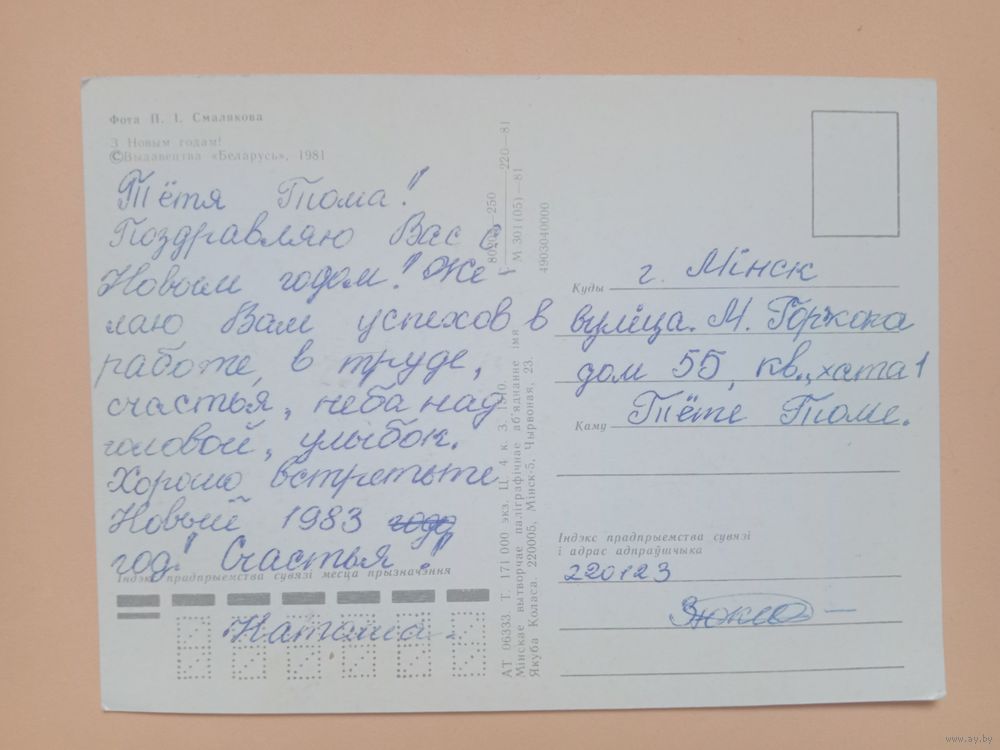 Фота П. І. Смалякова
З Новым годам!
©Выдавецтва «Беларусь», 1981
Тётя Тома!
Поздравляю Вас с
Новым годом! Же
лаю Вам успехов в
работе, в труде,
счастья, неба над
головой, улыбок.
Хорошо встретьте
Новый 1983
год! Счастья!
Індэкс прадпрыемства сувязі месца прызначэння
Наташа.
220—81
М 301(05)—81
4903040000
АТ 06333 Т. 171 000 экз. Ц. 4 к. З. 1910.
Мінскае вытворчае паліграфічнае аб'яднанне імя
Якуба Коласа. 220005, Мінск-5, Чырвоная, 23.
Куды г. Мінск
вуліца. М. Горкога
дом 55, кв., хата 1
Каму Тёте Томе.
Індэкс прадпрыемства сувязі
і адрас адпраўшчыка
220123
www.ay.by